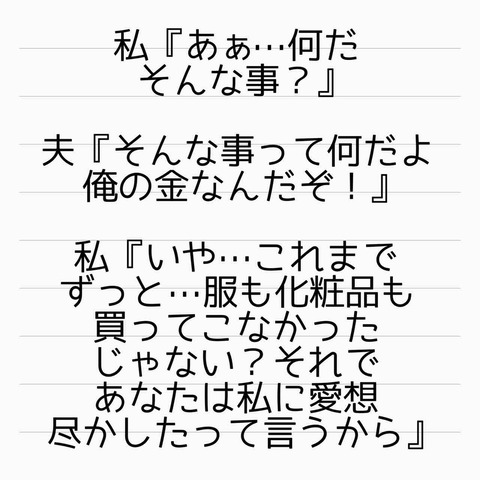 私『あぁ…何だ
そんな事？』
夫『そんな事って何だよ
俺の金なんだぞ！』
私『いや…これまで
ずっと…服も化粧品も
買ってこなかった
じゃない？それで
あなたは私に愛想
尽かしたって言うから』